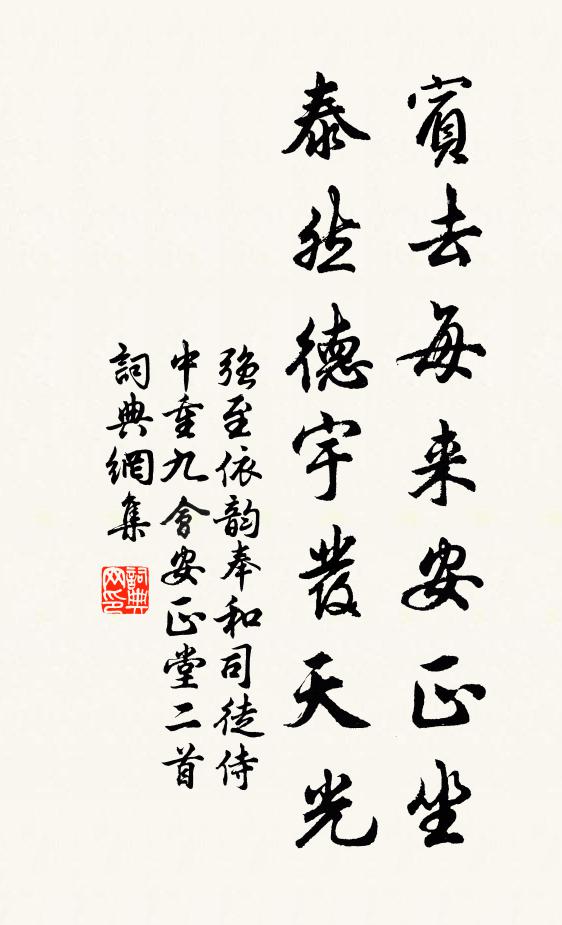 賓去每来安正坐
泰然德宇發天光
强至依韵奉和司徒侍
中重九會安正堂二首
詞典網集
詞典网印